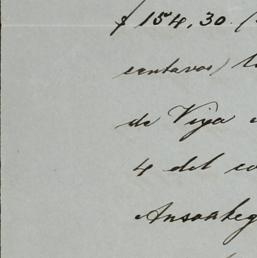 $ 154,30. (
centavos) l
de Viya
4 del co
Ansoateg